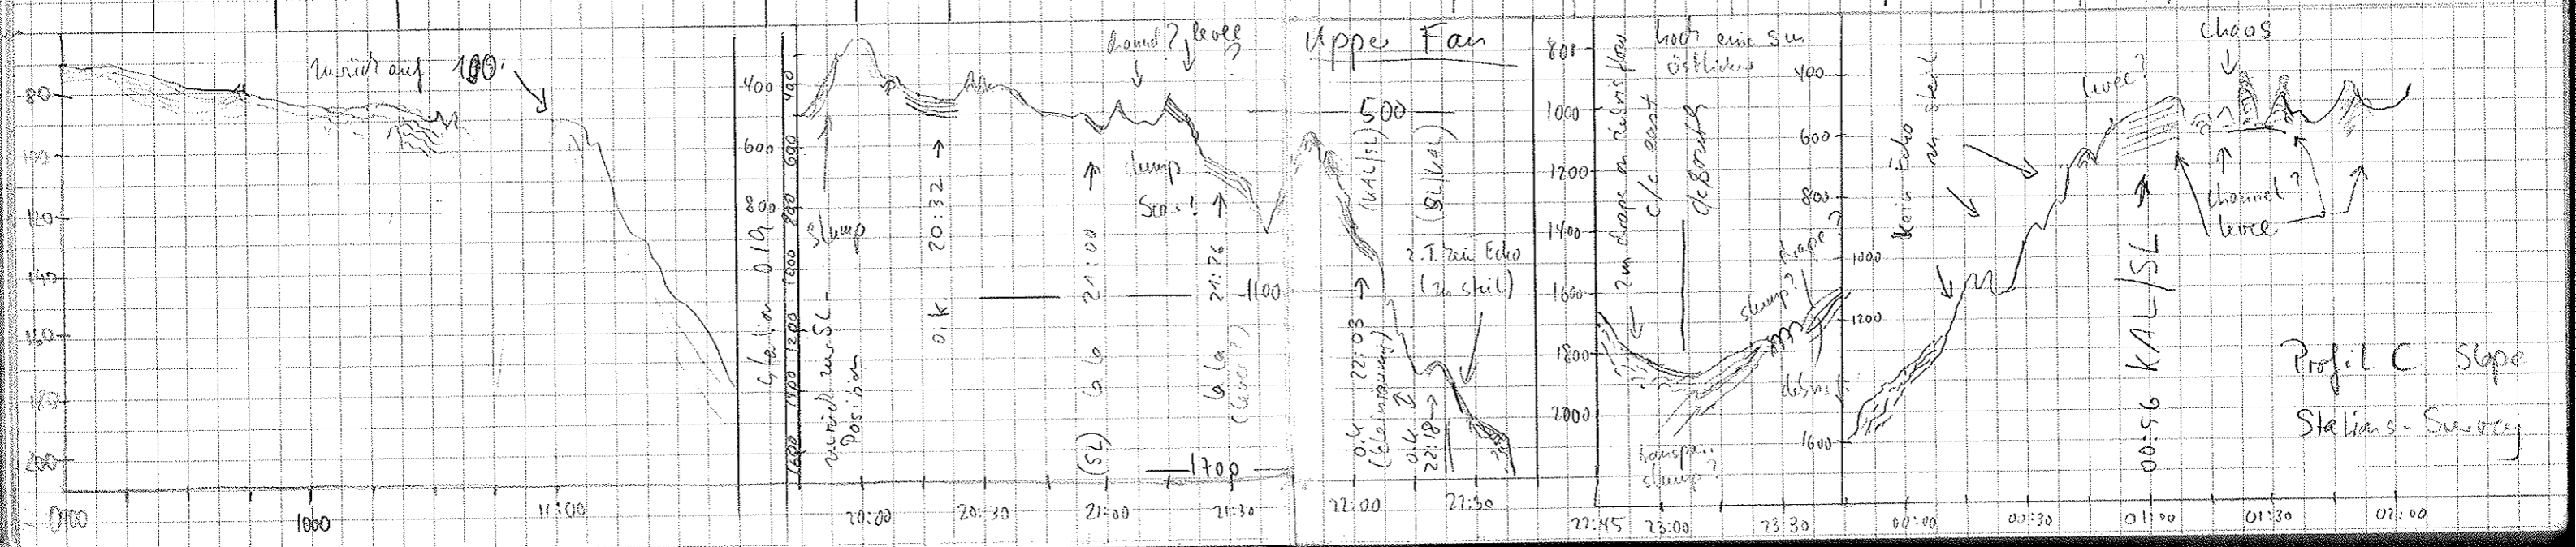 zurück auf 100
80
140
160
200
1000
11:00
Station 019
400
600
800
400
600
800
1000
1200
1400
1600
slump
zurück zur SL-
Position
o.k.
20:32 →
channel? levee
?
slump
Scar!
21:00
bla
(SL)
21:26
bla
1100
1700
20:00
20:30
21:00
21:30
Upper Fan
500
(KAL/SL)
(SL/KAL)
z.T. kein Echo
(zu steil)
22:03
o.k.
o.k.
22:18 →
22:00
22:30
800
1000
1200
1400
1600
1800
2000
2m drape on debris flow
c/c east
noch eine sm
östlicher
slump?
drape?
debris
transp..
slump?
22:45
23:00
23:30
400
600
800
1000
1200
1600
Kein Echo
zu steil
levee?
Chaos
channel?
levee
00:56 KAL/SL
Profil C Slope
Stations-Survey
00:00
00:30
01:00
01:30
02:00